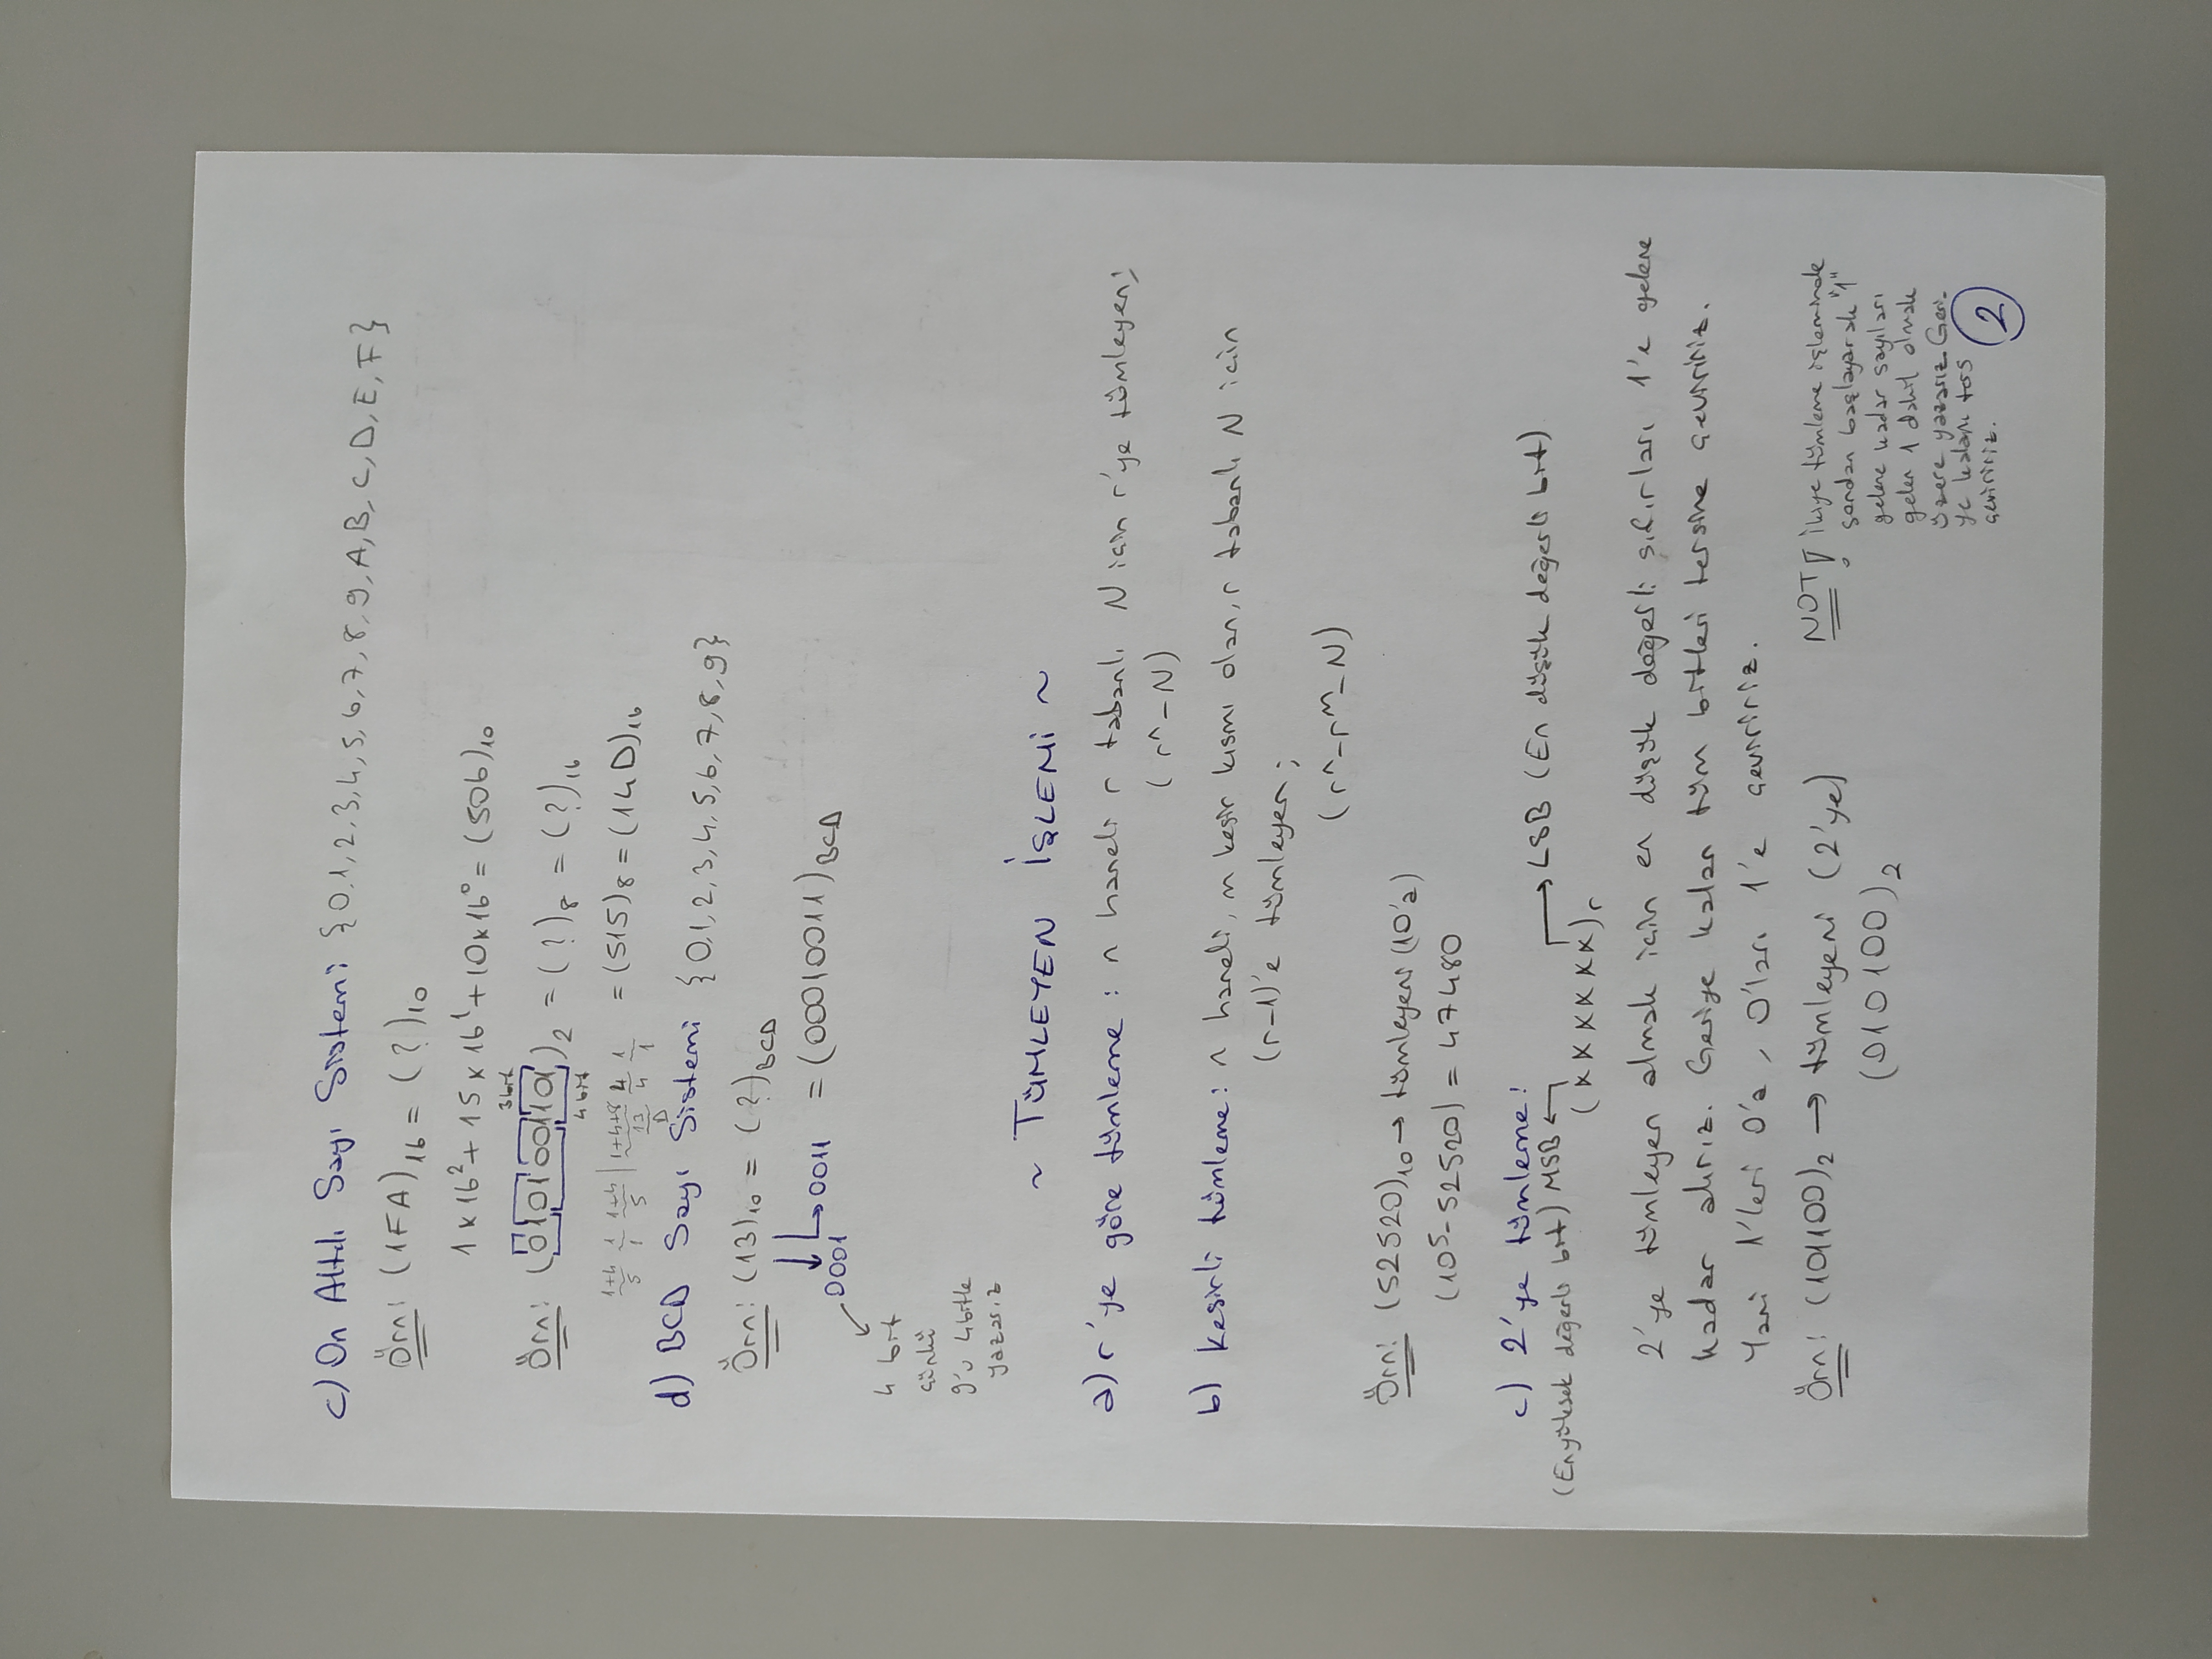 c) On Altılı Sayı Sistemi {0,1,2,3,4,5,6,7,8,9,A,B,C,D,E,F}
Örn: (1FA)16 = (?)10
1x16²+15x16¹+10x16⁰ = (506)10
3bit
Örn: (0101001101)2 = (?)8 = (?)16
4bit
1+4 1 1+4 | 1+4+8 4 1 = (515)8 = (14D)16
5 1 5 13 4 1
D
d) BCD Sayı Sistemi {0,1,2,3,4,5,6,7,8,9}
Örn: (13)10 = (?)BCD
0011 = (00010011)BCD
0001
4 bit
çünkü
9'u 4bitle
yazarız
~ TÜMLEYEN İŞLEMİ ~
a) r'ye göre tümleme : n haneli r tabanlı N için r'ye tümleyen;
(rⁿ-N)
b) Kesirli tümleme: n haneli, m kesir kısmı olan, r tabanlı N için
(r-1)'e tümleyen;
(rⁿ-rᵐ-N)
Örn: (52520)10 → tümleyeni (10'a)
(10⁵-52520) = 47480
c) 2'ye tümleme:
(En yüksek değerli bit) MSB ← → LSB (En düşük değerli bit)
(xxxxxx)r
2'ye tümleyen almak için en düşük değerli sıfırları 1'e gelene
kadar alırız. Geriye kalan tüm bitleri tersine çeviririz.
Yani 1'leri 0'a, 0'ları 1'e çeviririz.
Örn: (101100)2 → tümleyeni (2'ye)
(010100)2
NOT! İkiye tümleme işleminde
sondan başlayarak "1"
gelene kadar sayıları
gelen 1 dahil olmak
üzere yazarız. Geri-
ye kalanı ters
çeviririz.
2